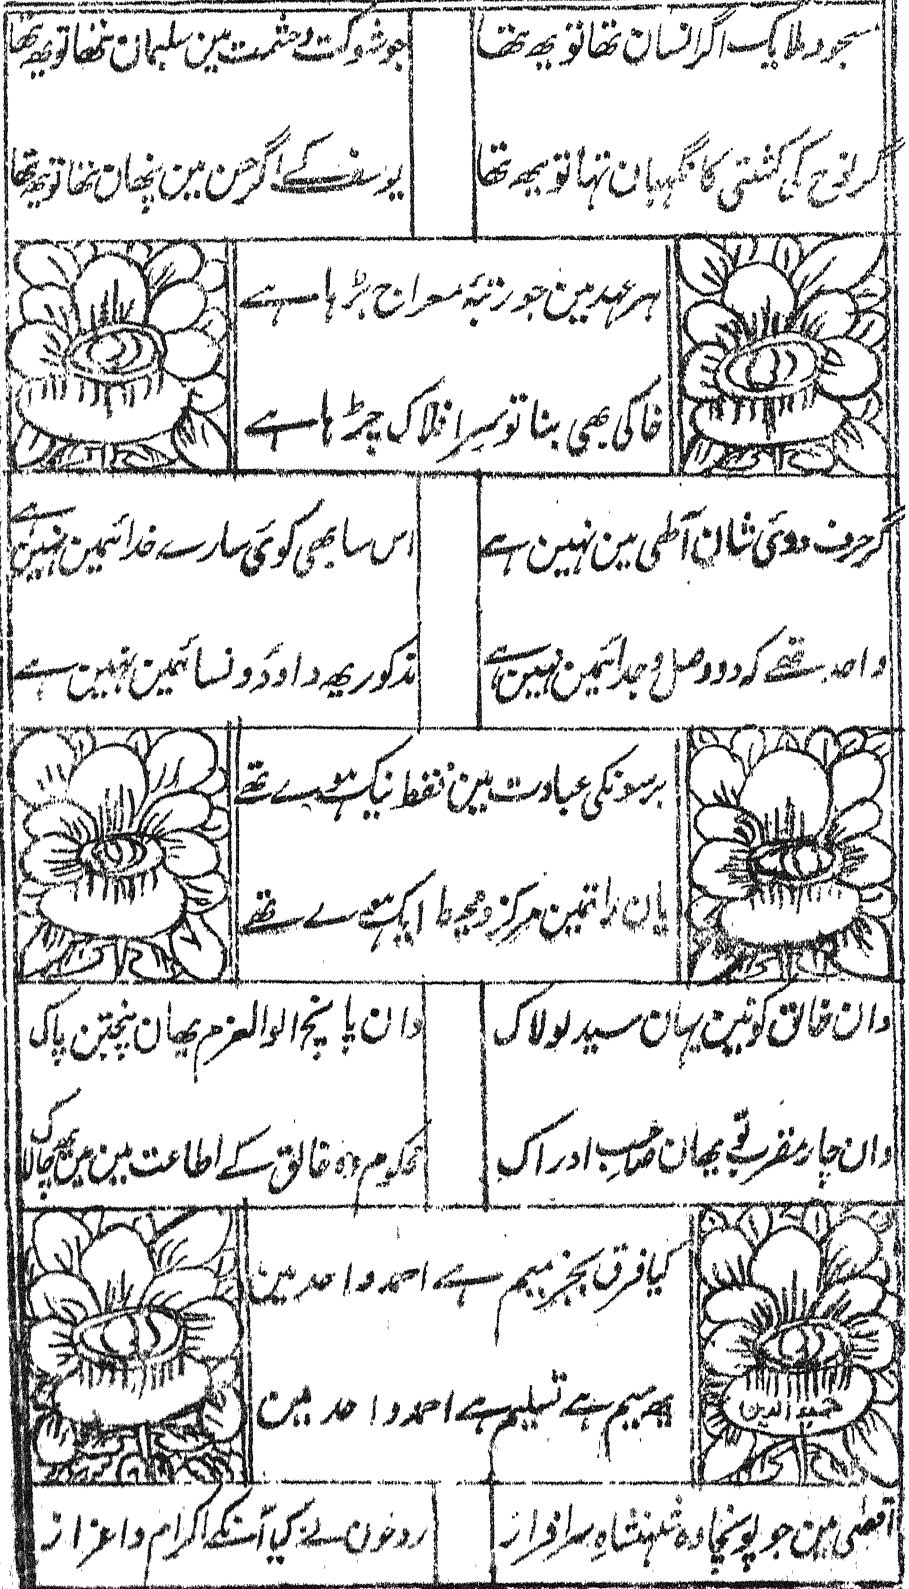 مسجود ملایک اگر انسان تھا تو یھ تھا
جو شوکت و حشمت مین سلیمان تھا تو یھ تھا
گر نوح کی کشتی کا نگہبان تہا تو یھ تھا
یوسف کے اگر حسن مین پنھان تھا تو یھ تھا
ہر عہد مین جو رتبۂ معراج بڑہا ہے
خاکی بھی بنا تو سرِ افلاک چڑہا ہے
گر حرف دوئی شان آلٰھی مین نہین ہے
اس سا بھی کوئی سارے خدائیمین نہین ہے
واحد تھے کہ دو وصل و جدائیمین نہین ہے
مذکور یھ داؤد و نسائیمین نہین ہے
برسونکی عبادت مین فقط نیک ہوے تھے
یان راتمین مرکز و محیط ایک ہوے تھے
وان خالق کونین یہان سید لولاک
وان پانچ الوالعزم یھان پنجتن پاک
وان چار مقرب تو یھان صاحبِ ادراک
محکوم وہ خالق کے اطاعت مین یھ چالاک
کیا فرق بجز میم ہے احمد و احد مین
یھ میم ہے تسلیم ہے احمد و احد مین
حمید الدین
اقصٰی مین جو پونچا وہ شہنشاہِ سرافراز
روحون نے کیا آنکے اکرام و اعزاز